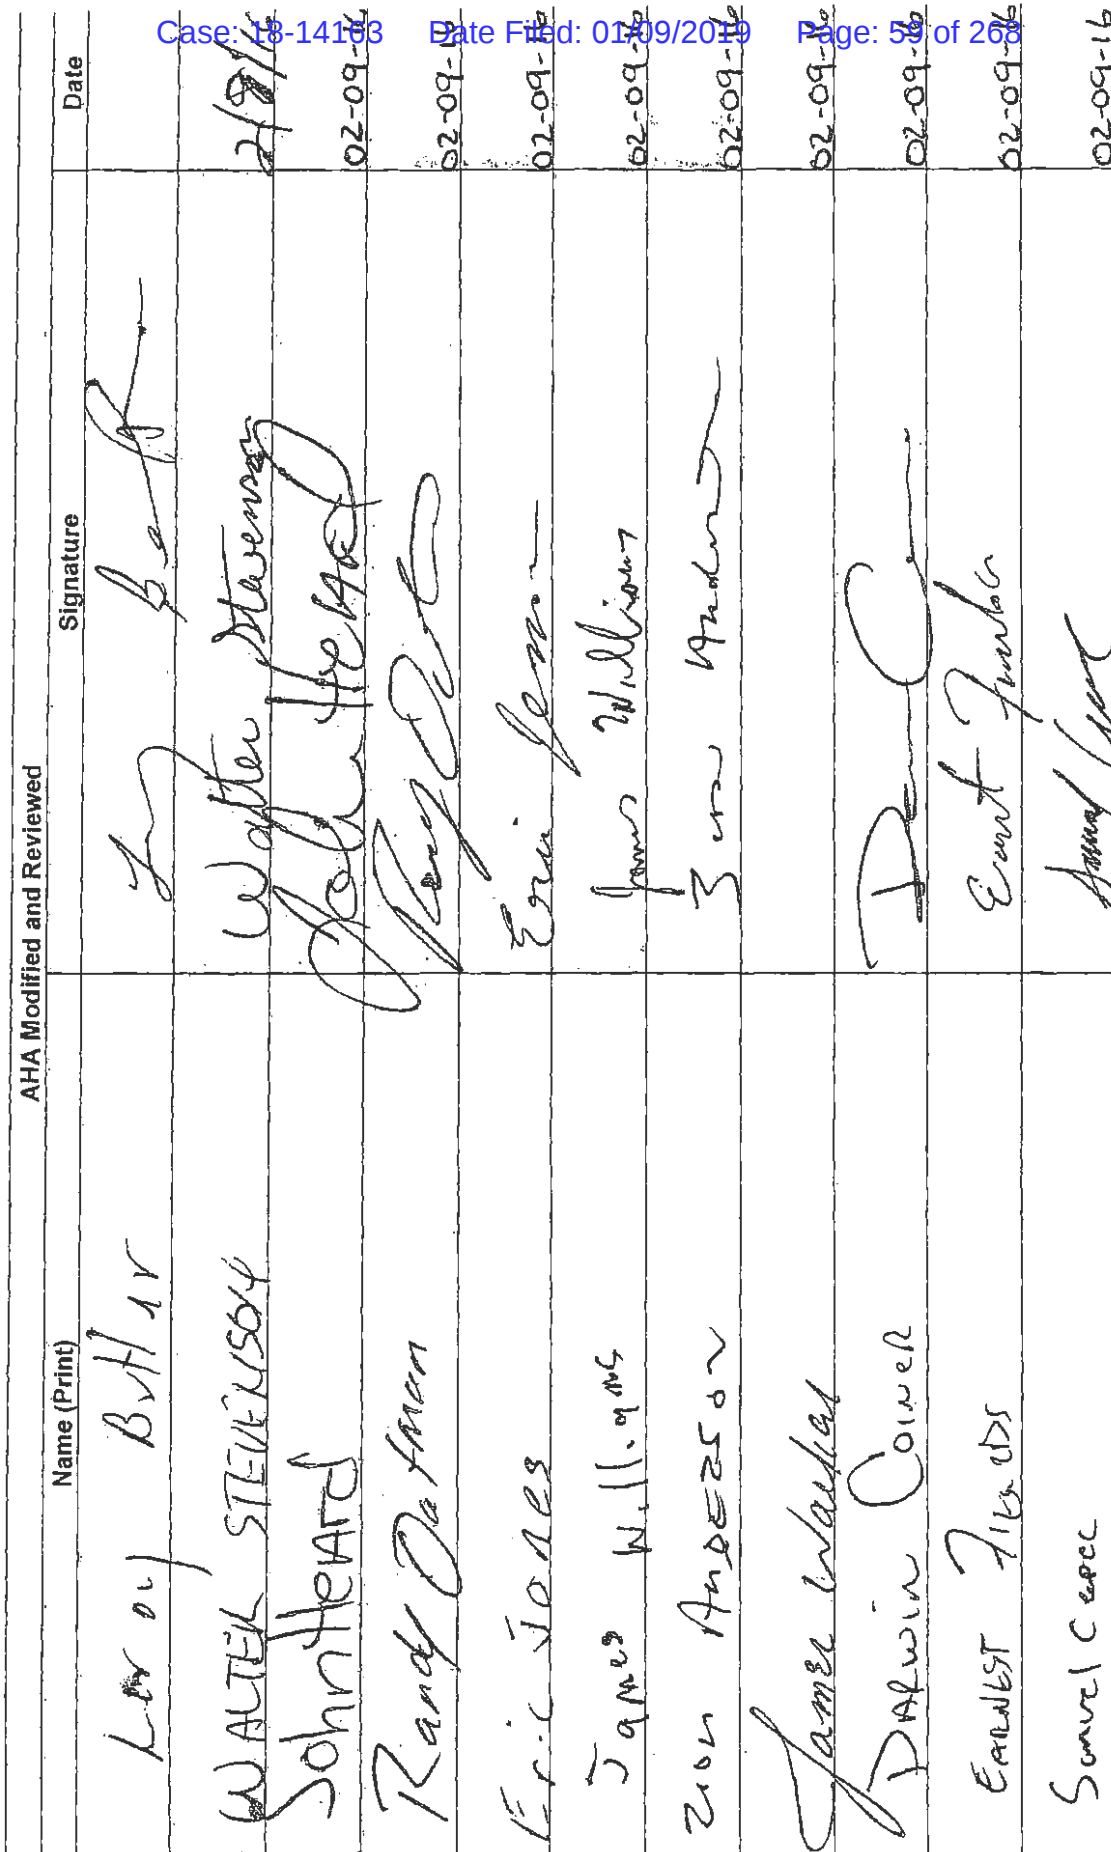 Case: 18-14163 Date Filed: 01/09/2019 Page: 59 of 268
AHA Modified and Reviewed
Name (Print) Signature Date
Leroy Butler
WALTER STEVENSON Walter Stevenson 2/8/16
John Heard John Heard 02-09-16
Randy Oatman 02-09-16
Eric Jones Eric Jones 02-09-16
James Williams James Williams 02-09-16
Zion Anderson 02-09-16
James Walker 02-09-16
Darwin Coiner 02-09-16
Earnest 02-09-16
Samuel 02-09-16